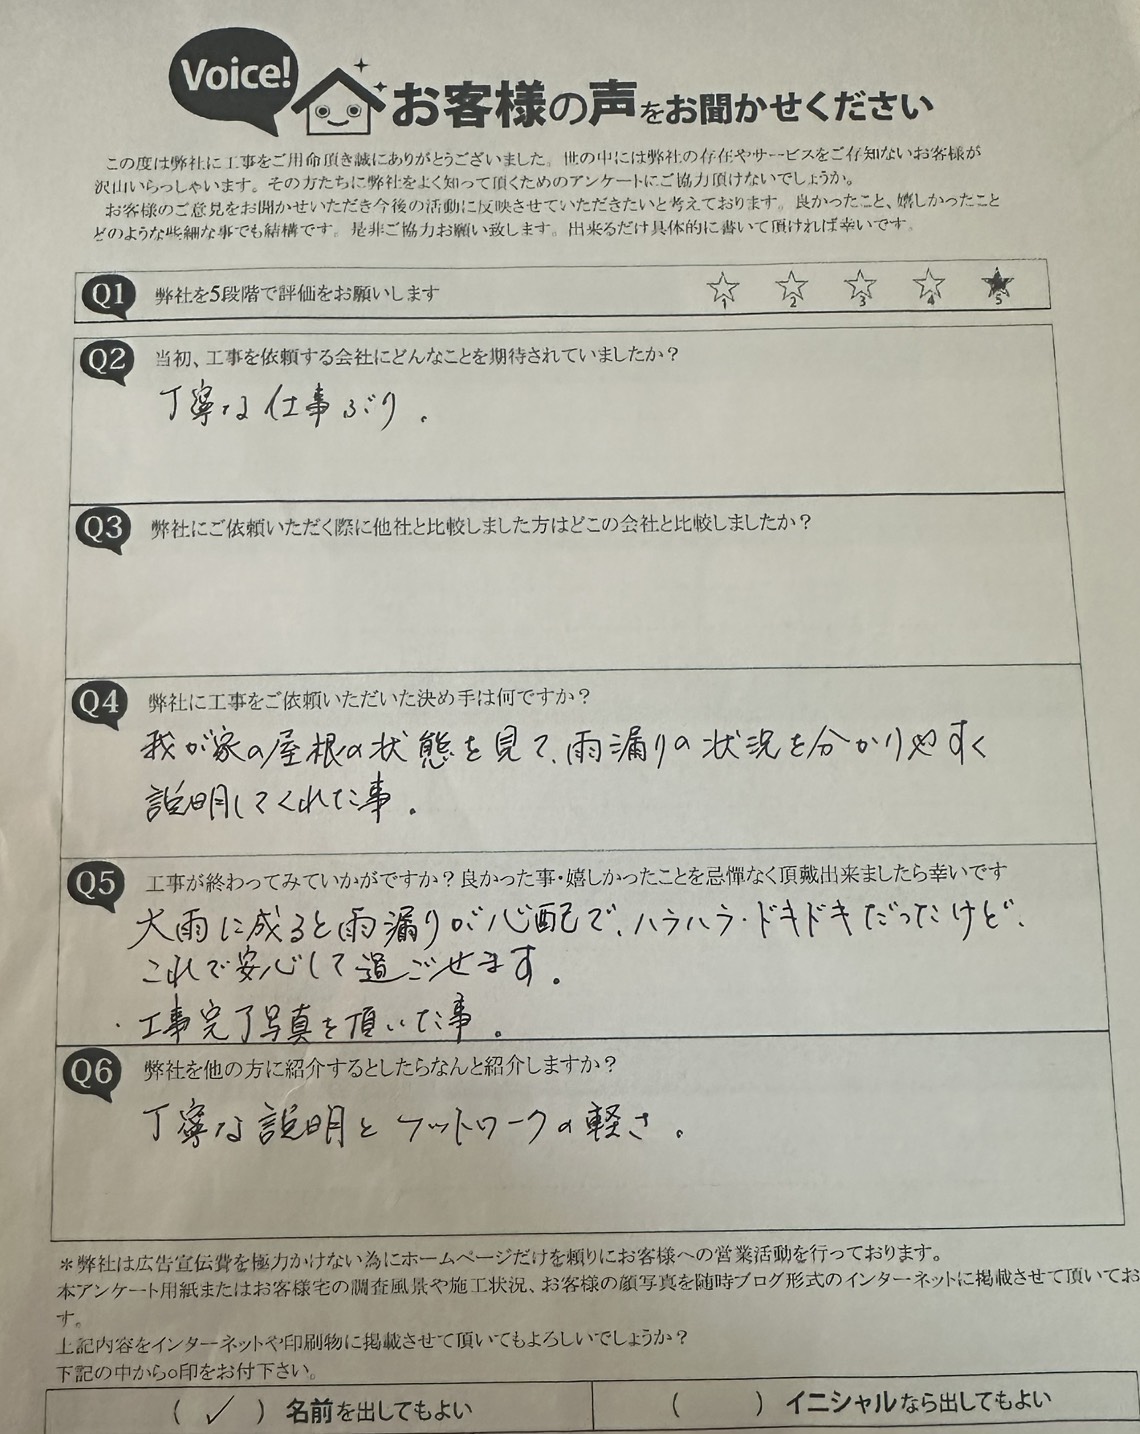 Voice!
お客様の声をお聞かせください
この度は弊社に工事をご用命頂き誠にありがとうございました。世の中には弊社の存在やサービスをご存知ないお客様が
沢山いらっしゃいます。その方たちに弊社をよく知って頂くためのアンケートにご協力頂けないでしょうか。
お客様のご意見をお聞かせいただき今後の活動に反映させていただきたいと考えております。良かったこと、嬉しかったこと
どのような些細な事でも結構です。是非ご協力お願い致します。出来るだけ具体的に書いて頂ければ幸いです。
Q1 弊社を5段階で評価をお願いします ☆1 ☆2 ☆3 ☆4 ★5
Q2 当初、工事を依頼する会社にどんなことを期待されていましたか？
丁寧な仕事ぶり。
Q3 弊社にご依頼いただく際に他社と比較しました方はどこの会社と比較しましたか？
Q4 弊社に工事をご依頼いただいた決め手は何ですか？
我が家の屋根の状態を見て、雨漏りの状況を分かりやすく
説明してくれた事。
Q5 工事が終わってみていかがですか？良かった事・嬉しかったことを忌憚なく頂戴出来ましたら幸いです
大雨に成ると雨漏りが心配で、ハラハラ・ドキドキだったけど、
これで安心して過ごせます。
・工事完了写真を頂いた事。
Q6 弊社を他の方に紹介するとしたらなんと紹介しますか？
丁寧な説明とフットワークの軽さ。
＊弊社は広告宣伝費を極力かけない為にホームページだけを頼りにお客様への営業活動を行っております。
本アンケート用紙またはお客様宅の調査風景や施工状況、お客様の顔写真を随時ブログ形式のインターネットに掲載させて頂いてお
す。
上記内容をインターネットや印刷物に掲載させて頂いてもよろしいでしょうか？
下記の中から○印をお付下さい。
（ ✓ ）名前を出してもよい （ ）イニシャルなら出してもよい